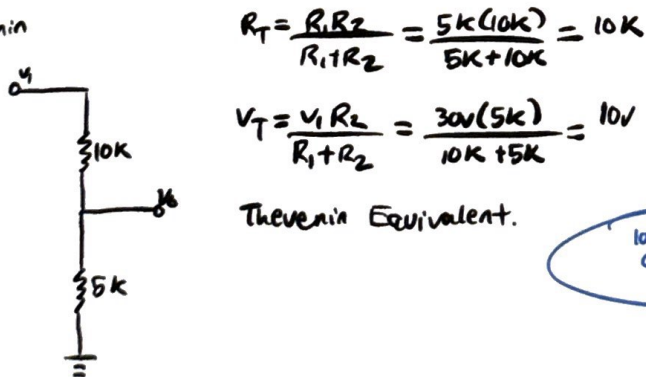 V₁
10K
V₀
5K
R_T = R₁R₂ / R₁+R₂ = 5K(10K) / 5K+10K = 10K
V_T = V₁R₂ / R₁+R₂ = 30V(5K) / 10K+5K = 10V
Thevenin Equivalent.